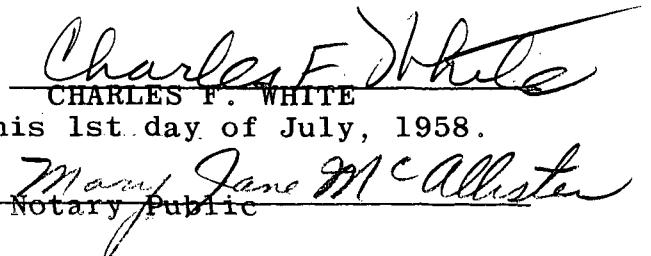 Charles F. White
CHARLES F. WHITE
his 1st day of July, 1958.
Mary Jane McAllister
Notary Public